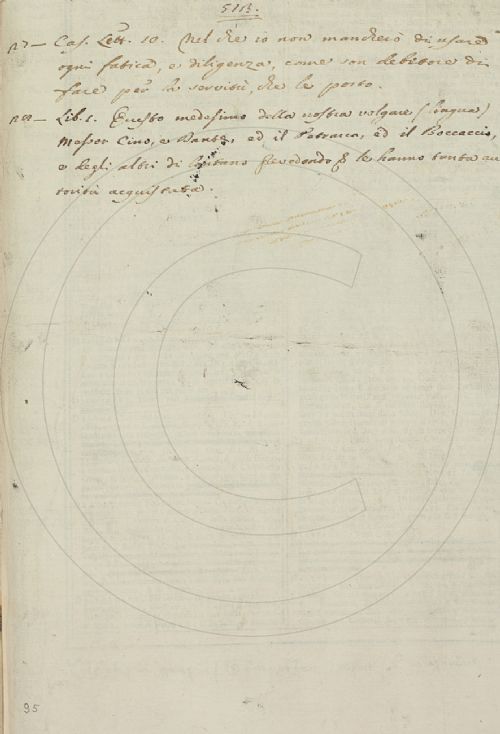 5113.
Cas. Lett. 10. Nel che io non mancherò di usare
ogni fatica, e diligenza, come son debitore di
fare per la servitù, che le porto.
Lib. 1. Questo medesimo della nostra volgare (lingua)
Messer Cino, e Dante, ed il Petrarca, ed il Boccaccio,
e degli altri di lontano prevedendo le hanno tanta au
torità acquistata.
95